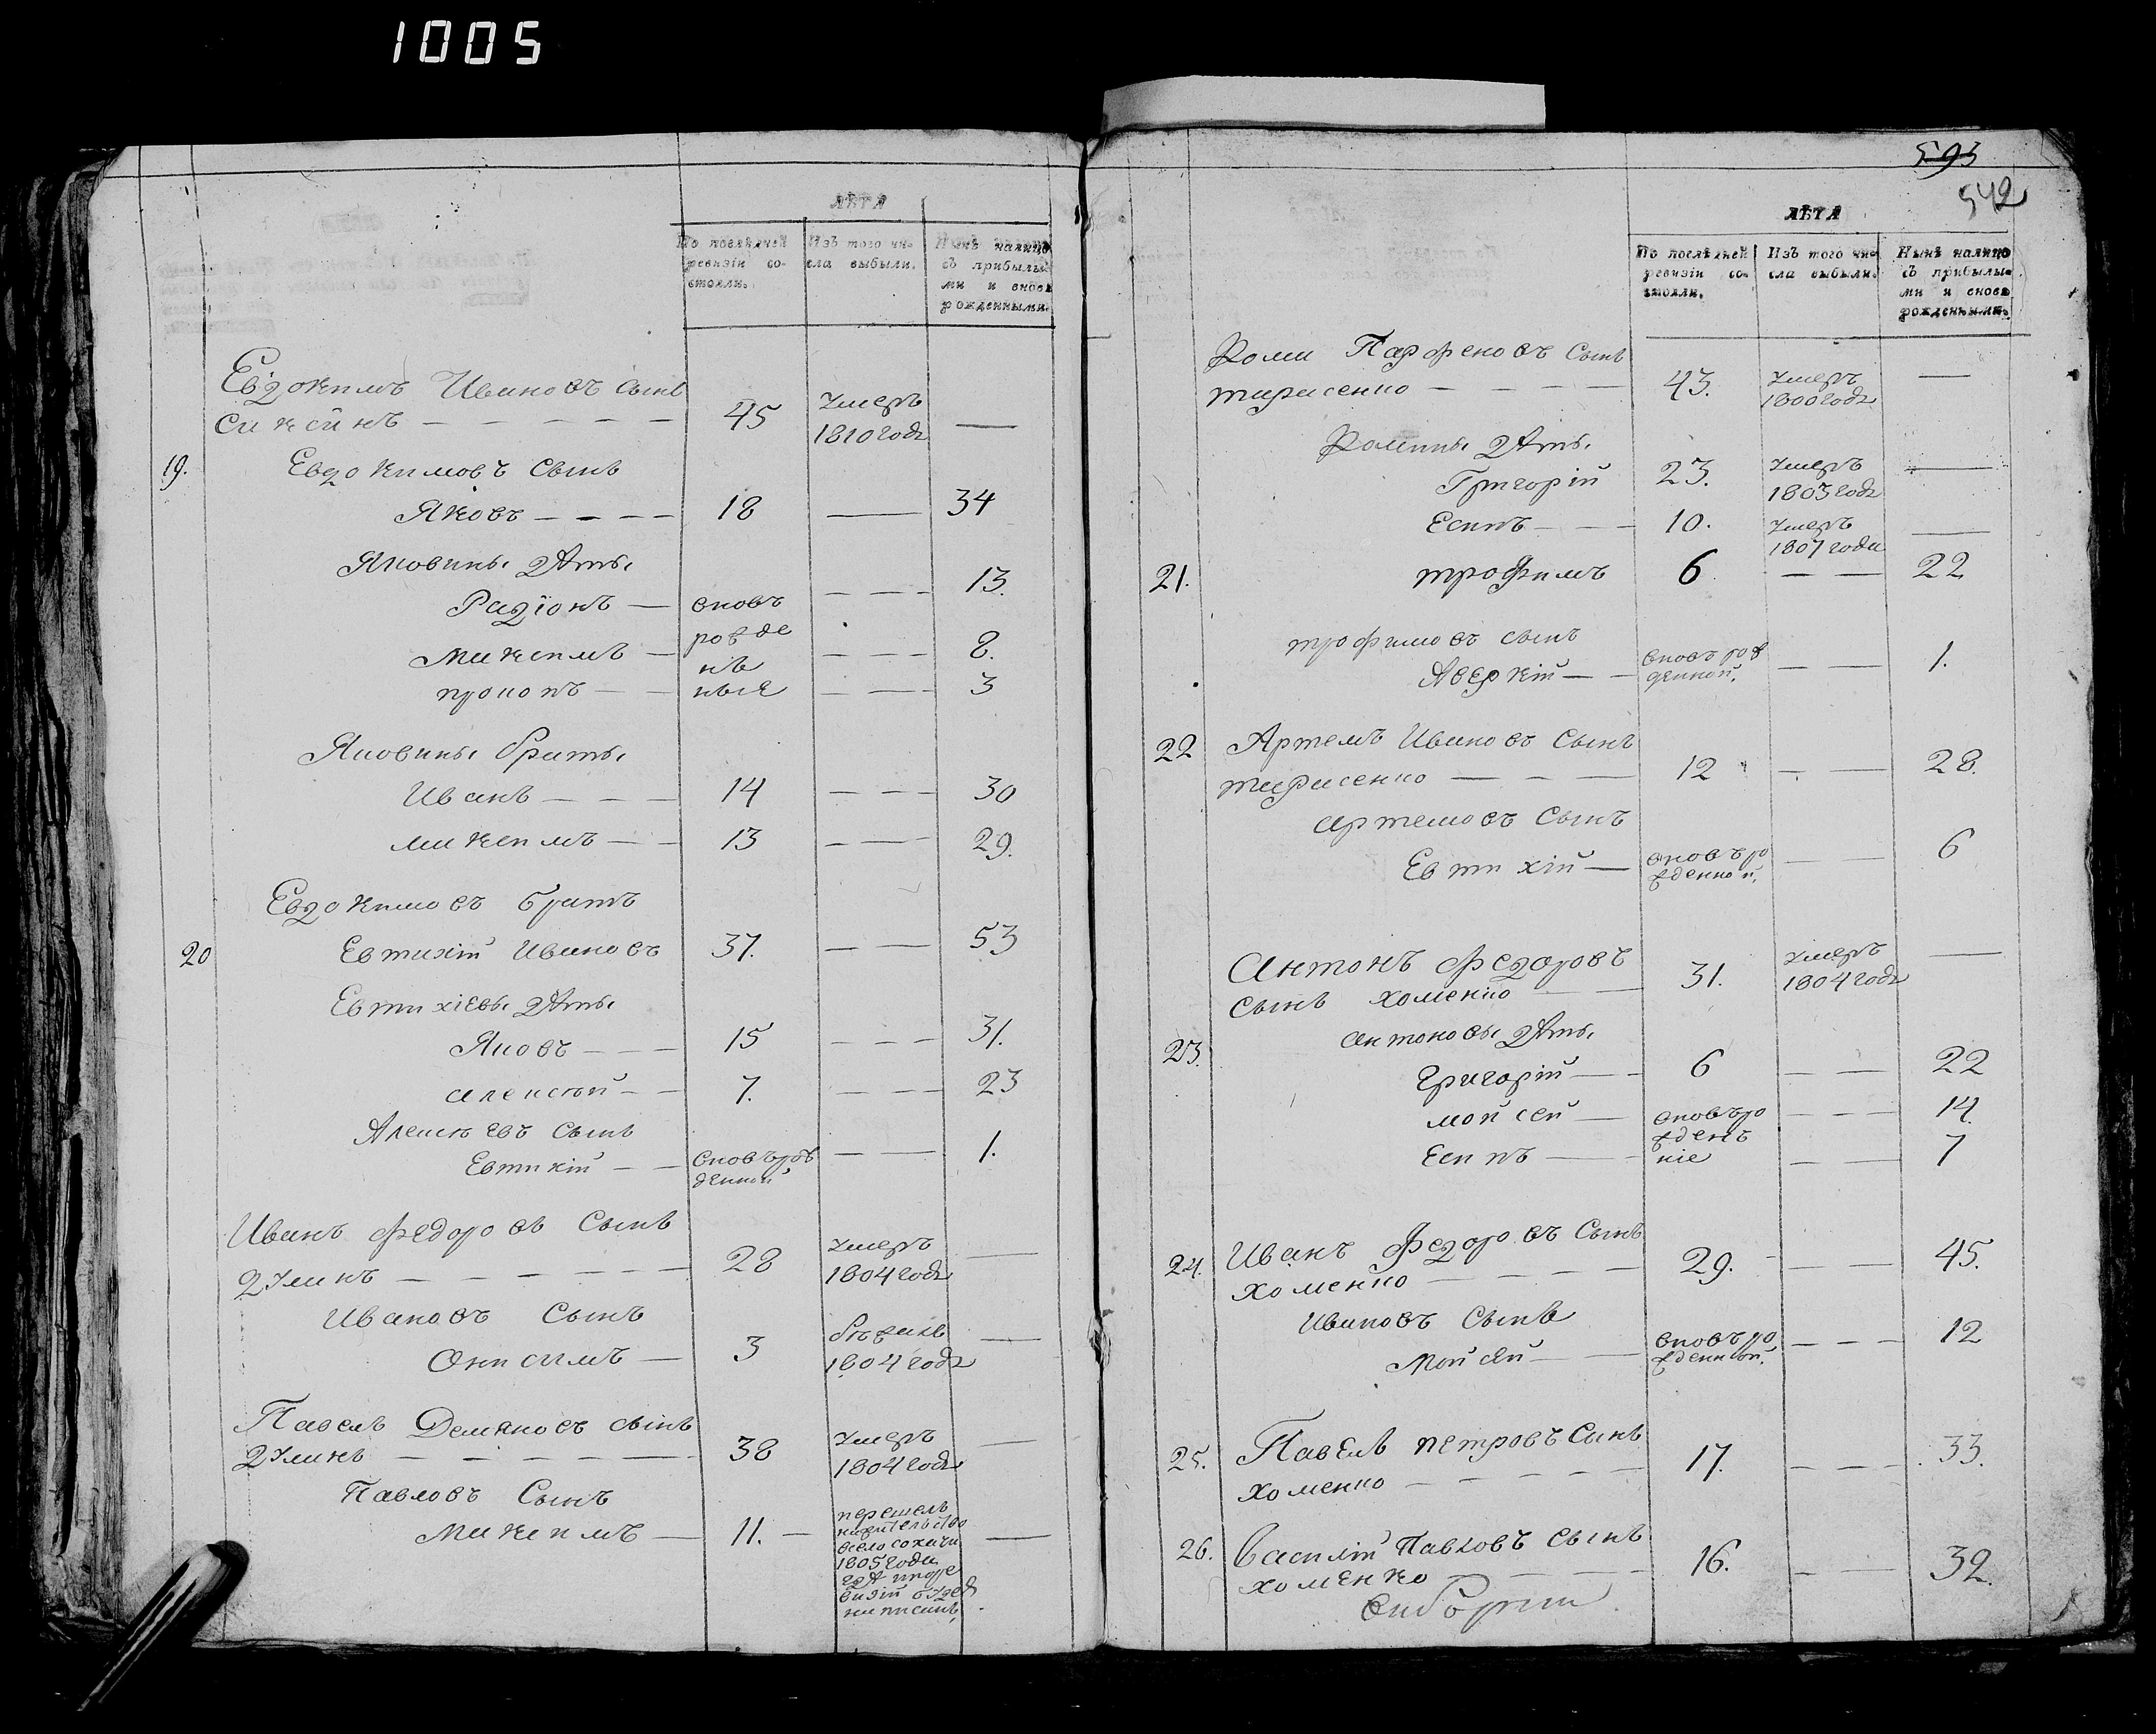 1005
ЛѢТА
По послѣдней ревизіи состояли.
Изъ того числа выбыли.
Нынѣ налицо съ прибылыми и вновь рожденными.
Евдокимъ Ивановъ сынъ
45
умеръ
1810 года
19.
Евдокимовъ сынъ
Яковъ 18 34
Яковины дѣти
Радіонъ вновь 13.
Максимъ рожде 8.
нъ
прокопъ ные 3
Яковины браты
Иванъ 14 30
максимъ 13 29.
Евдокимовъ братъ
20 Евтихій Ивановъ 37. 53
Евтихіевы дѣти
Яковъ 15 31.
алексѣй 7. 23
Алексѣевъ сынъ
Евтихій вновь рож 1.
денной
Иванъ Федоровъ сынъ
28
умеръ
1804 года
Ивановъ сынъ
Онисимъ 3
бѣжалъ
1804 года
Павелъ Демяновъ сынъ
38
умеръ
1804 года
Павловъ Сынъ
Максимъ 11.
перешелъ
1805 года
написанъ
593
542
ЛѢТА
По послѣдней ревизіи состояли.
Изъ того числа выбыли.
Нынѣ налицо съ прибылыми и вновь рожденными.
Фома Парфеновъ сынъ
тарасенко 43.
умеръ
1800 года
Фомины дѣти
Григорій 23.
умеръ
1803 года
Есипъ 10.
умеръ
1807 года
21. трофимъ 6. 22
трофимовъ сынъ
Аверкій вновь рож 1.
денной.
22 Артемъ Ивановъ Сынъ
тарасенко 12 28.
артемовъ Сынъ
Евтихій вновь ро 6
жденной.
Антонъ Федоровъ
сынъ хоменко 31.
умеръ
1804 года
антоновы дѣти
23.
григорій 6 22
мойсей вновь ро 14.
жденъ
Есипъ ніе 7
24. Иванъ Федоровъ Сынъ
хоменко 29. 45.
Ивановъ Сынъ
Мойсей вновь ро 12
жденной.
25. Павелъ петровъ Сынъ
хоменко 17. 33.
26. Василій Павловъ сынъ
хоменко 16. 32.